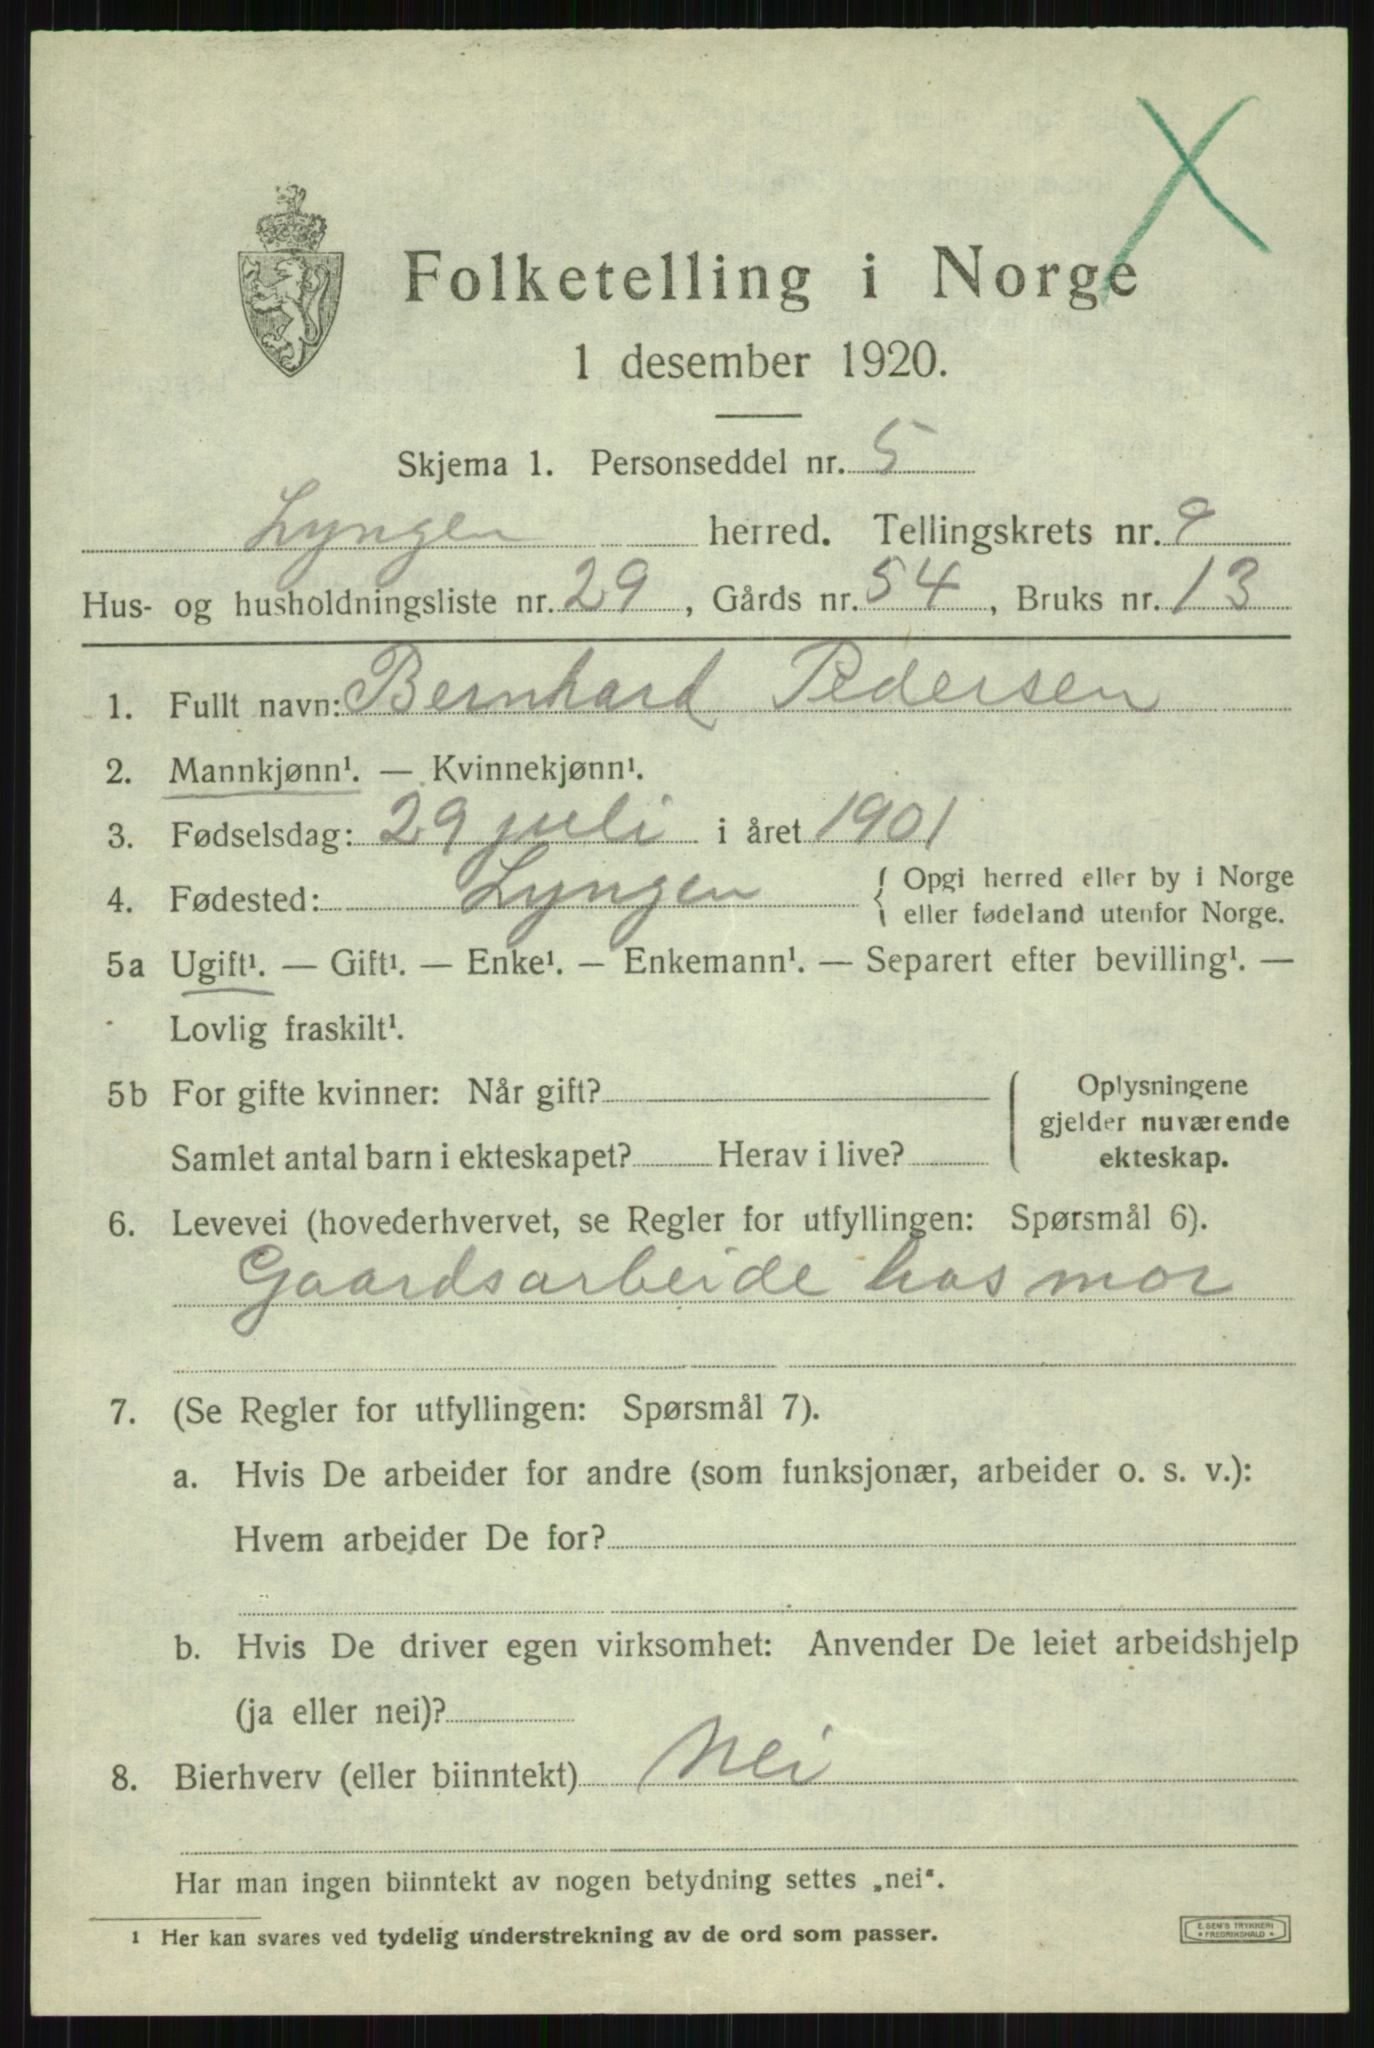 Folketelling i Norge
1 desember 1920.
Skjema 1. Personseddel nr. 5
Lyngen herred. Tellingskrets nr. 9
Hus- og husholdningsliste nr. 29, Gårds nr. 54, Bruks nr. 13
1. Fullt navn: Bernhard Pedersen
2. Mannkjønn¹. — Kvinnekjønn¹.
3. Fødselsdag: 29 juli i året 1901
4. Fødested: Lyngen { Opgi herred eller by i Norge
eller fødeland utenfor Norge.
5a Ugift¹. — Gift¹. — Enke¹. — Enkemann¹. — Separert efter bevilling¹. —
Lovlig fraskilt¹.
5b For gifte kvinner: Når gift?
Samlet antal barn i ekteskapet? Herav i live?
Oplysningene
gjelder nuværende
ekteskap.
6. Levevei (hovederhvervet, se Regler for utfyllingen: Spørsmål 6).
Gaardsarbeide hos mor
7. (Se Regler for utfyllingen: Spørsmål 7).
a. Hvis De arbeider for andre (som funksjonær, arbeider o. s. v.):
Hvem arbeider De for?
b. Hvis De driver egen virksomhet: Anvender De leiet arbeidshjelp
(ja eller nei)?
8. Bierhverv (eller biinntekt) Nei
Har man ingen biinntekt av nogen betydning settes „nei“.
1 Her kan svares ved tydelig understrekning av de ord som passer.
E. SEM'S TRYKKERI
* FREDRIKSHALD *